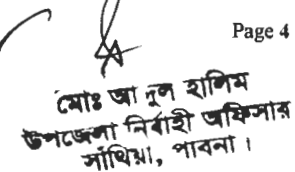 Page 4
মোঃ আ দুল হালিম
উপজেলা নির্বাহী অফিসার
সাঁথিয়া, পাবনা।